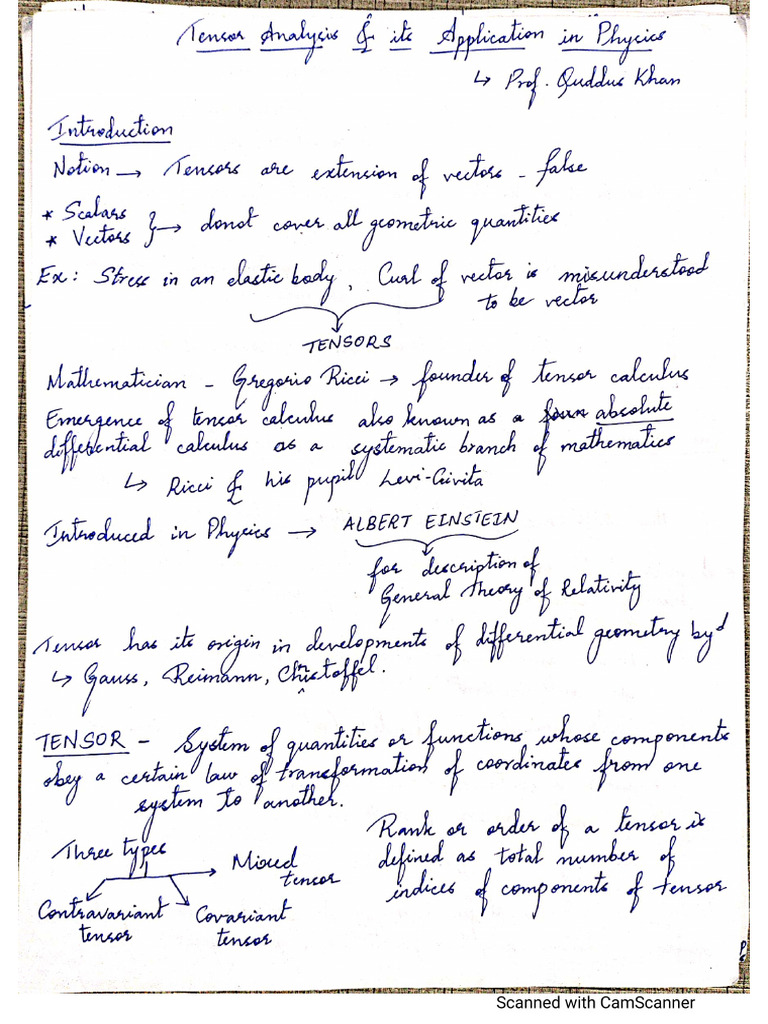 Tensor Analysis & its Application in Physics
↳ Prof. Quddus Khan
Introduction
Notion → Tensors are extension of vectors - false
* Scalars
* Vectors } → donot cover all geometric quantities
Ex: Stress in an elastic body, Curl of vector is misunderstood
to be vector
TENSORS
Mathematician - Gregorio Ricci → founder of tensor calculus
Emergence of tensor calculus also known as a absolute
differential calculus as a systematic branch of mathematics
↳ Ricci & his pupil Levi-Civita
Introduced in Physics → ALBERT EINSTEIN
for description of
General Theory of Relativity
Tensor has its origin in developments of differential geometry by
↳ Gauss, Reimann, Christoffel.
TENSOR - System of quantities or functions whose components
obey a certain law of transformation of coordinates from one
system to another.
Three types
Mixed
tensor
Contravariant
tensor
Covariant
tensor
Rank or order of a tensor is
defined as total number of
indices of components of tensor
Scanned with CamScanner